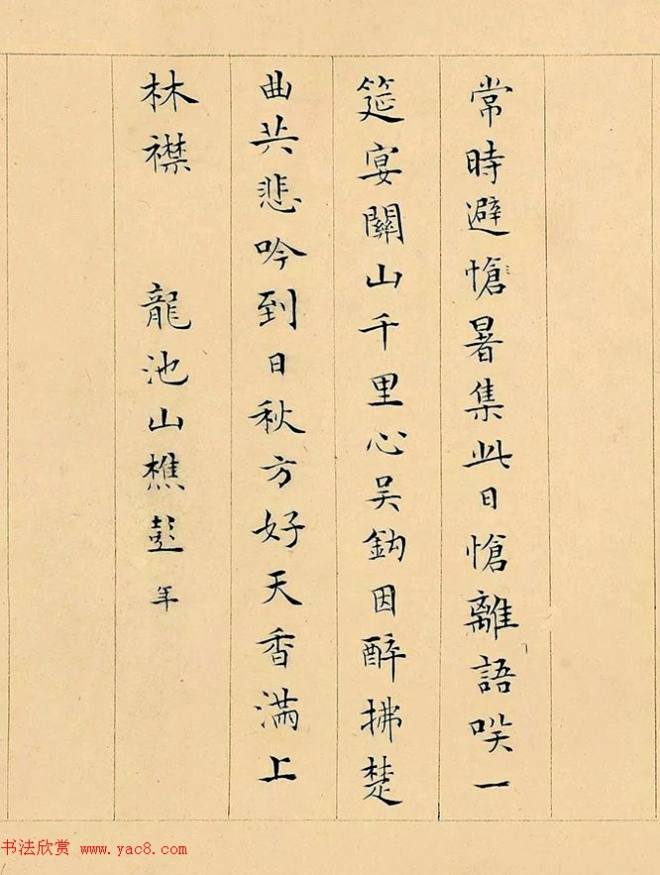 常時避愴暑集此日愴離語咲一
筵宴關山千里心吳鈎因醉拂楚
曲共悲吟到日秋方好天香滿上
林襟 龍池山樵彭年
书法欣赏 www.yac8.com